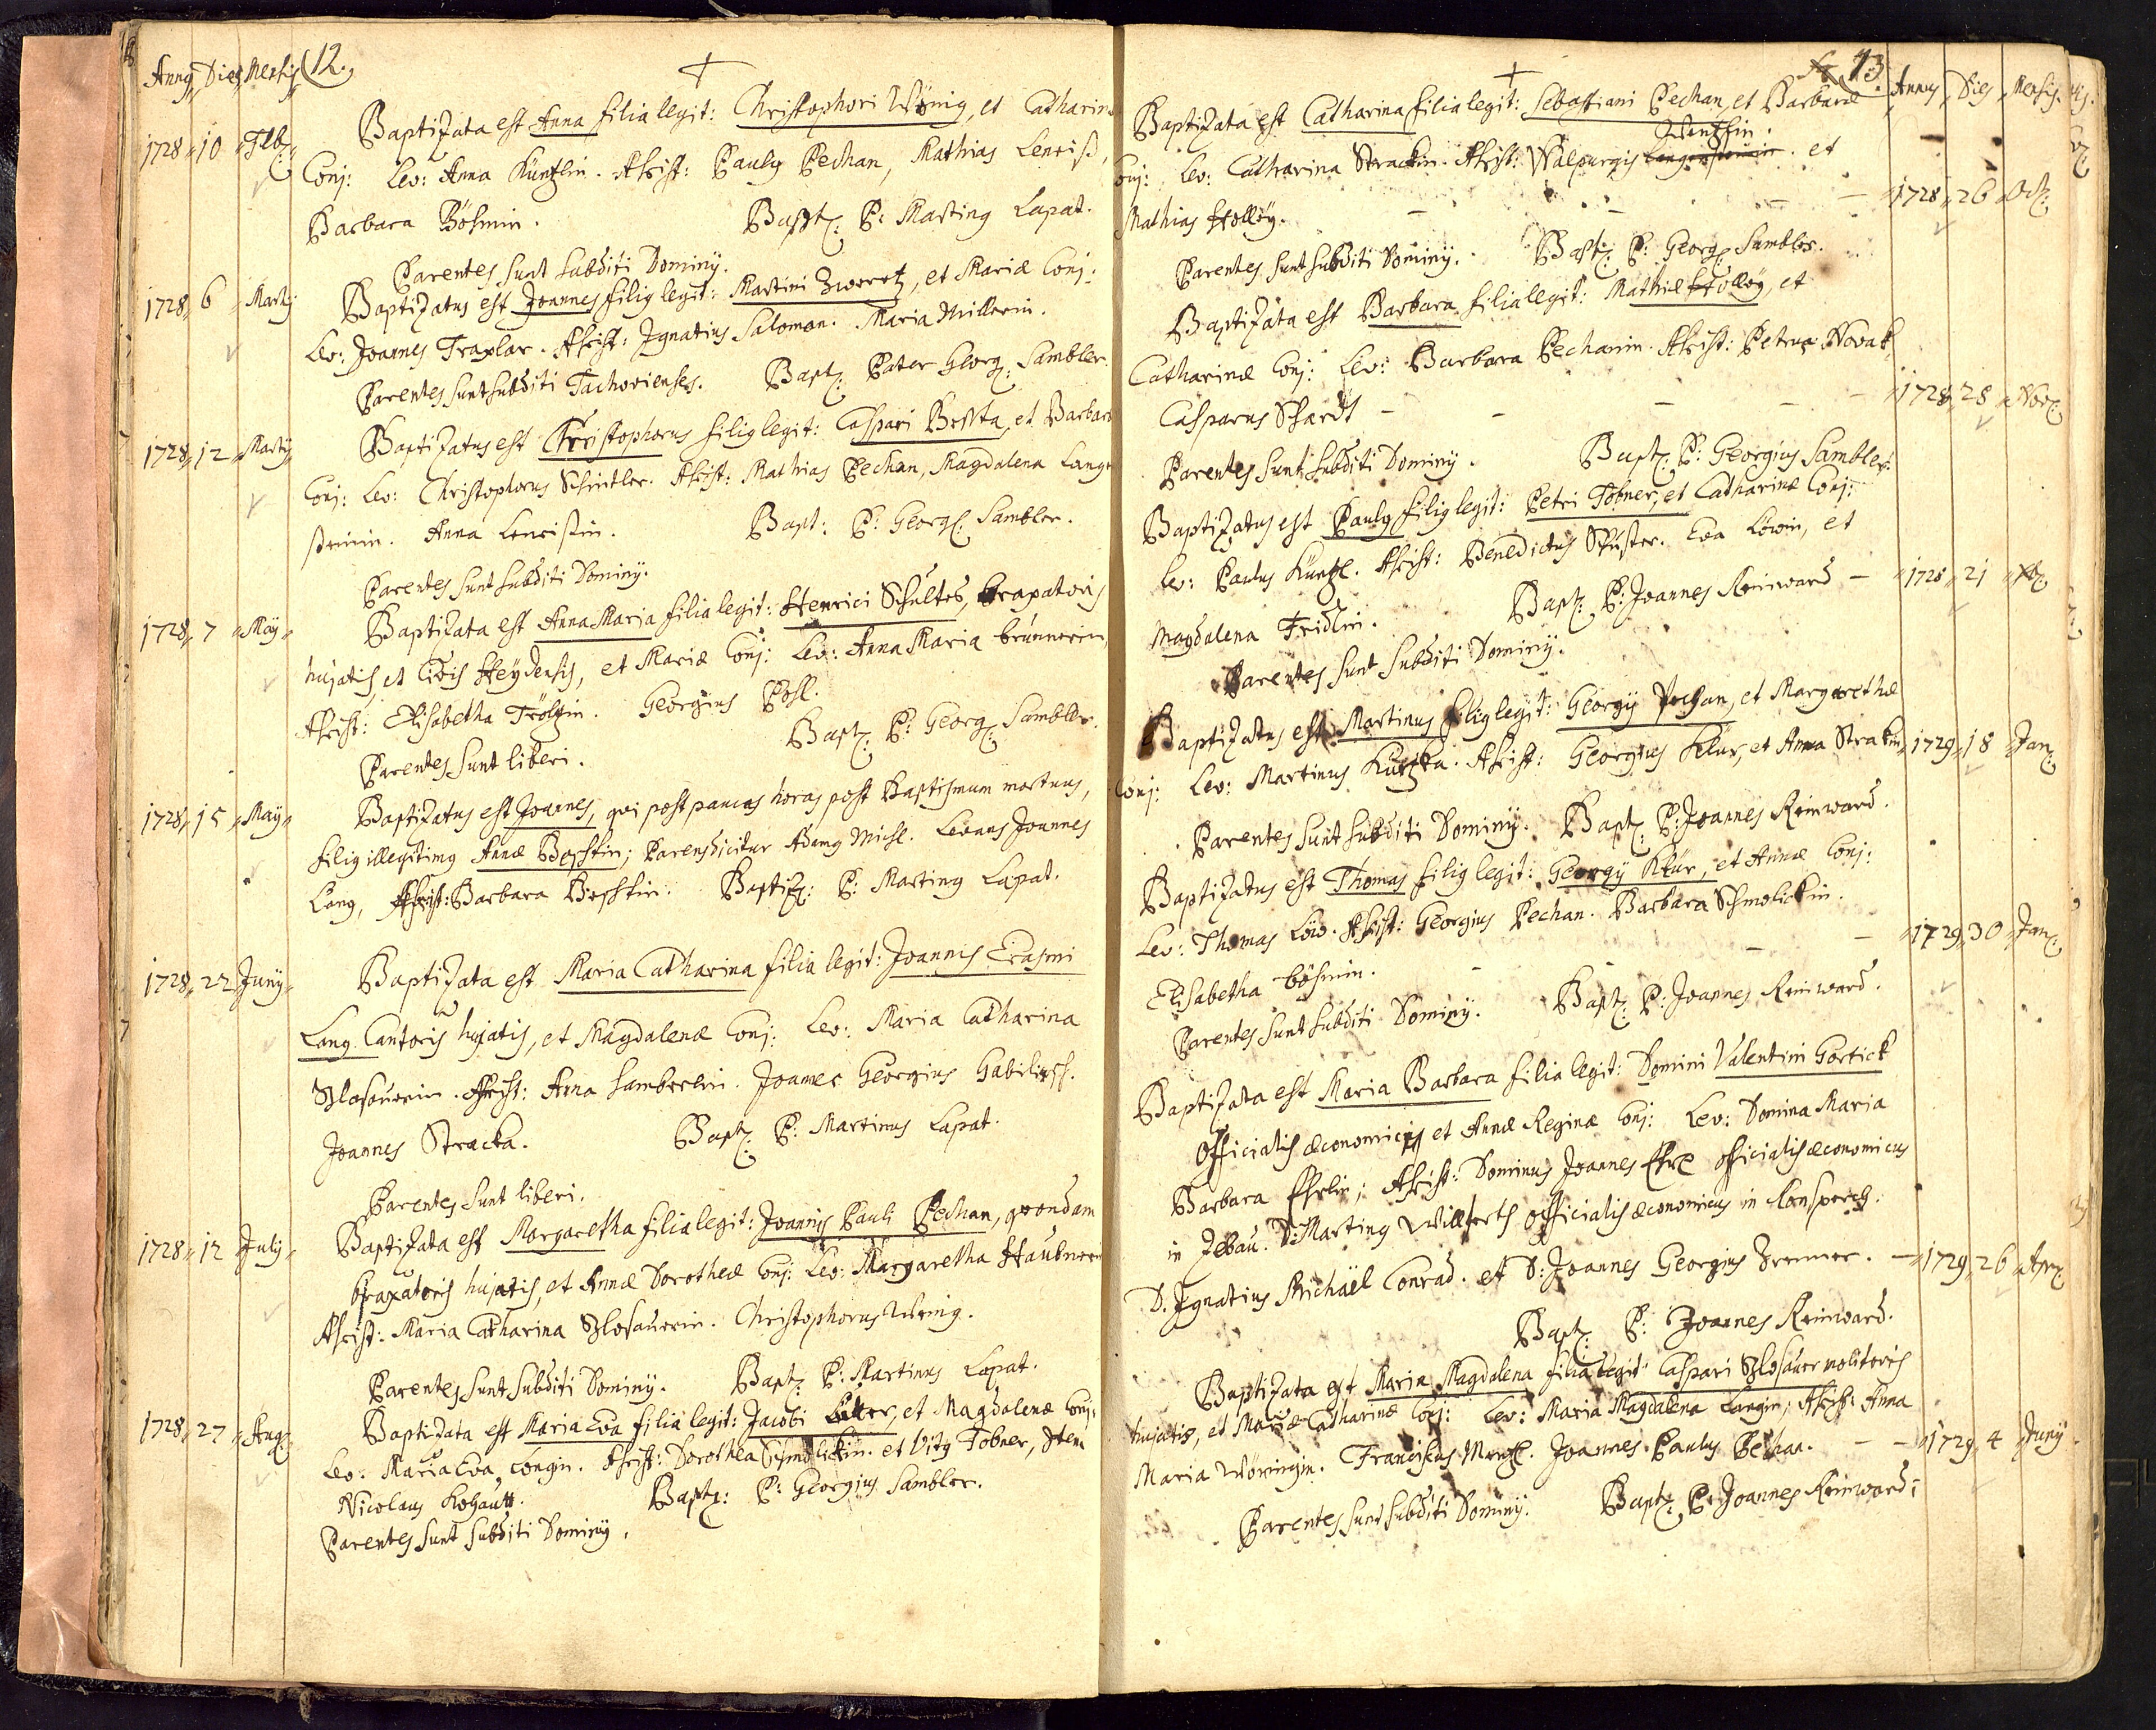 Annus Dies Mensis 12.
1728 10 Feb:
Baptizata est Anna filia legit: Christophori Wönig, et Catharin
Conj: Lev: Anna Küntzlin. Assist: Paulus Pechan, Mathias Lenciß,
Barbara Böhmin. Bapt: P: Martinus Lapat.
Parentes sunt subditi Dominy.
1728 6 Marty
Baptizatus est Joannes filius legit: Martini Zworetz, et Mariæ Conj:
Lev: Joannes Traxlar. Assist: Ignatius Saloman. Maria Millerin.
Parentes sunt subditi Tachovienses. Bapt: Pater Georg: Sambler
1728 12 Marty
Baptizatus est Christophorus filius legit: Caspari Boshta, et Barbaræ
Conj: Lev: Christophorus Schintler. Assist: Mathias Pechan, Magdalena Lang
Anna Lencißin. Bapt: P: Georg: Sambler.
Parentes sunt subditi Dominy.
1728 7 May
Baptizata est Anna Maria filia legit: Henrici Schultes, braxatoris
hujatis, et Civis Heydensis, et Mariæ Conj: Lev: Anna Maria brünnerin,
Assist: Elisabetha Tröltzin. Georgius Posl.
Bapt: P: Georg: Sambler.
Parentes sunt liberi.
1728 15 May
Baptizatus est Joannes, qui post paucas horas post Baptismum mortuus,
filius illegitimus Annæ Boshtin; Parens dicitur Adamus Michl. Levans Joannes
Lang, Assist: Barbara Boshtin. Baptiz: P: Martinus Lapat.
1728 22 Juny
Baptizata est Maria Catharina filia legit: Joannis Erasmi
Lang Cantoris hujatis, et Magdalenæ Conj: Lev: Maria Catharina
Slosaurin. Assist: Anna Sambrerin. Joannes Georgius
Joannes Stracka. Bapt: P: Martinus Lapat.
Parentes sunt liberi.
1728 12 July
Baptizata est Margaretha filia legit: Joannis Pauli Pechan, quondam
braxatoris hujatis, et Annæ Dorotheæ Conj: Lev: Margaretha Haubner
Assist: Maria Catharina Slosaurin. Christophorus Wönig.
Parentes sunt subditi Dominy. Bapt: P: Martinus Lapat.
1728 27 Aug:
Baptizata est Maria Eva filia legit: Jacobi et Magdalenæ Conj:
Lev: Maria Eva Assist: Dorothea Schmolickin. et Vitus Tobner, Item
Nicolaus Kohautt. Bapt: P: Georgius Sambler.
Parentes sunt subditi Dominy.
13.
Annus Dies Mensis
Baptizata est Catharina filia legit: Sebastiani Pechan, et Barbaræ
Wentzlin.
Conj: Lev: Catharina Strackin. Assist: Walpurgis et
Mathias Holloy. 1728 26 Oct:
Parentes sunt subditi Dominy. Bapt: P: Georg: Sambler.
Baptizata est Barbara filia legit: Mathiæ Holloy, et
Catharinæ Conj: Lev: Barbara Pechanin. Assist: Petrus Novak,
Casparus Schardt 1728 28 Nov:
Parentes sunt subditi Dominy. Bapt: P: Georgius Sambler.
Baptizatus est Paulus filius legit: Petri Tobner, et Catharinæ Conj:
Lev: Paulus Küntzl. Assist: Benedictus Schuster. Eva Löwin, et
Magdalena Fridlin. Bapt: P: Joannes Reinward 1728 21 Xb:
Parentes sunt subditi Dominy.
Baptizatus est Martinus filius legit: Georgy Pechan, et Margarethæ
Conj: Lev: Martinus Kutzka. Assist: Georgius Klur, et Anna Strakin 1729 18 Jan:
Parentes sunt subditi Dominy. Bapt: P: Joannes Reinward.
Baptizatus est Thomas filius legit: Georgy Klur, et Annæ Conj:
Lev: Thomas Löw. Assist: Georgius Pechan. Barbara Schmolickin.
Elisabetha böhmin. 1729 30 Jan:
Parentes sunt subditi Dominy. Bapt: P: Joannes Reinward.
Baptizata est Maria Barbara filia legit: Domini Valentini Gortick
Officialis œconomici et Annæ Reginæ Conj: Lev: Domina Maria
Barbara Assist: Dominus Joannes officialis œconomicus
in Zebau. D: Martinus Willferth officialis œconomicus in Ronsperg.
D. Ignatius Michaël Conrad. et D: Joannes Georgius 1729 26 Apr:
Bapt: P: Joannes Reinward.
Baptizata est Maria Magdalena filia legit: Caspari Slosauer molitoris
hujatis, et Mariæ Catharinæ Conj: Lev: Maria Magdalena Langin, Assist: Anna
Maria Wöningin. Franciscus Joannes Paulus Pechan. 1729 4 Juny
Parentes sunt subditi Dominy. Bapt: P: Joannes Reinward.